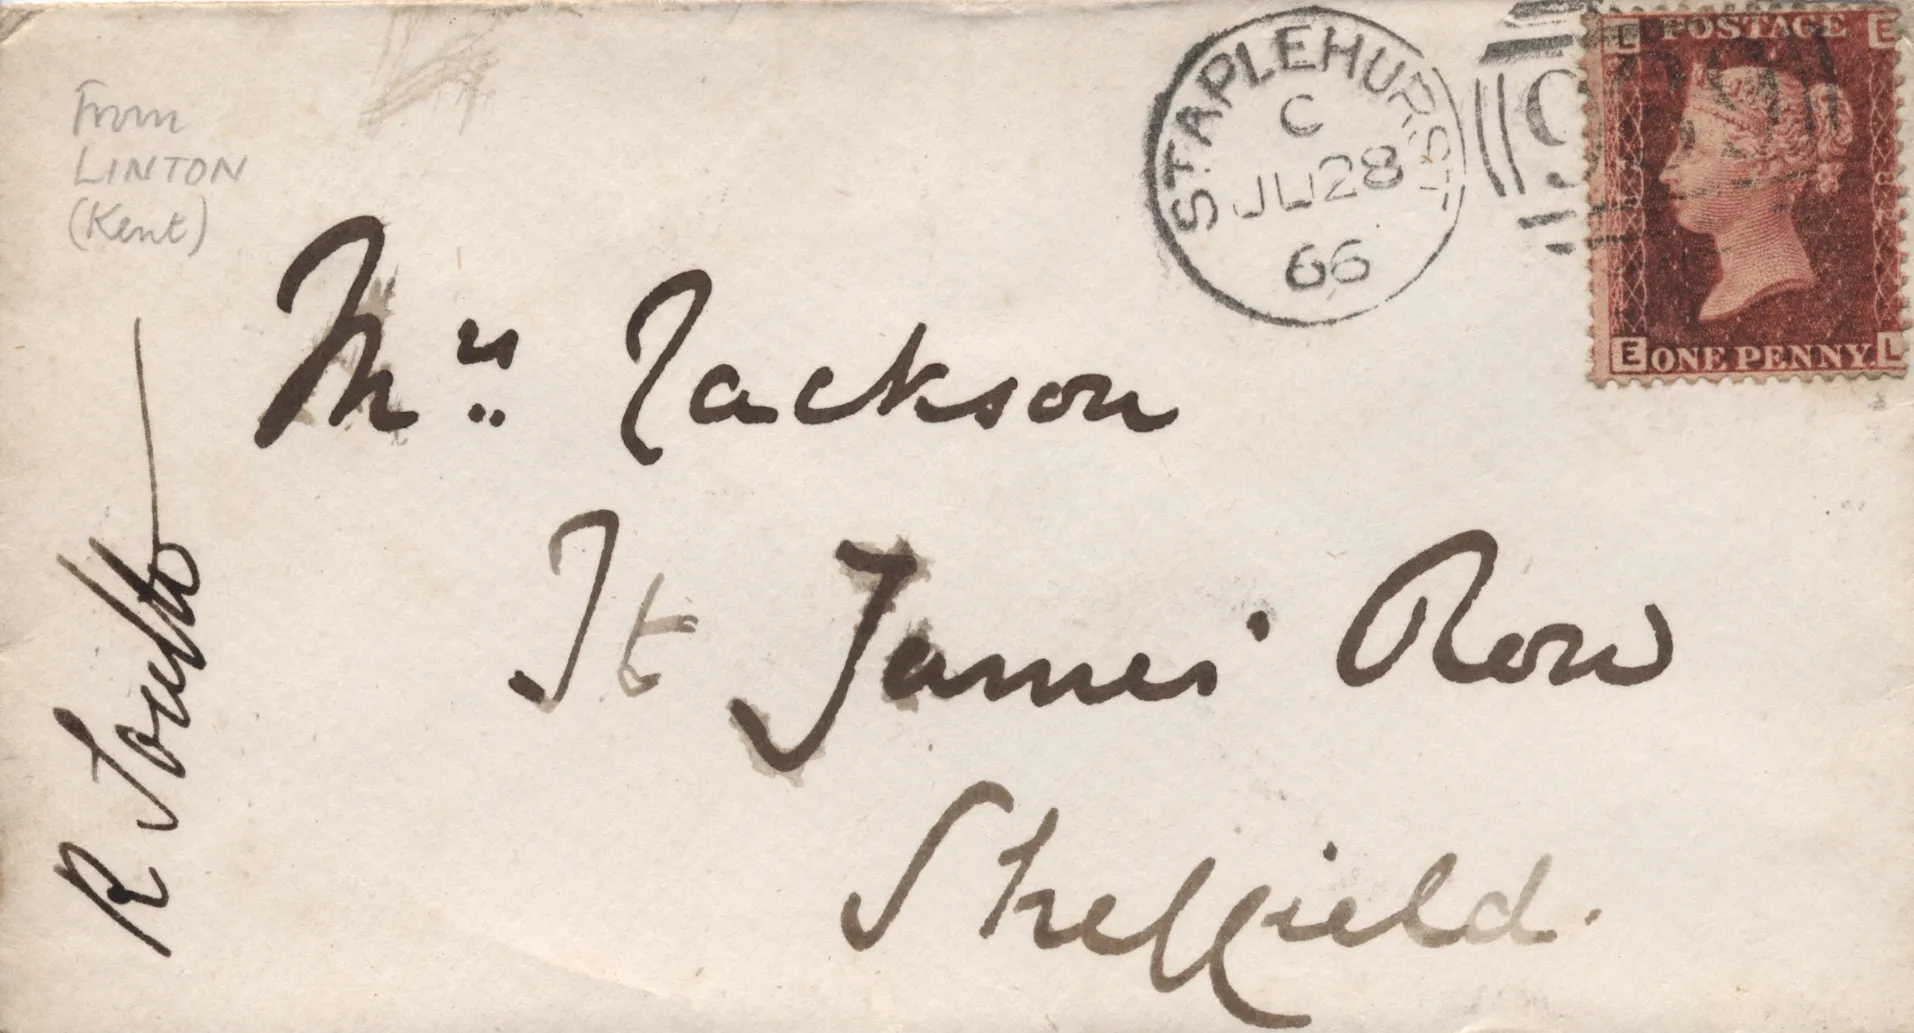 From
LINTON
(Kent)
STAPLEHURST
C
JU 28
66
L POSTAGE E
E ONE PENNY L
Mrs. Jackson
St James' Row
Sheffield.
R